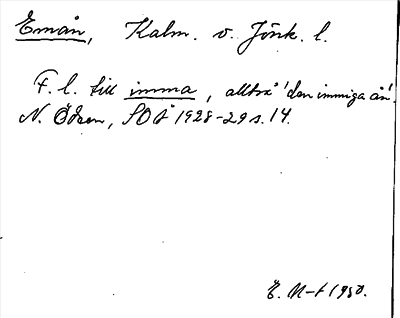 Emån, Kalm. o. Jönk. l.
F. l. till imma, alltså 'den immiga ån'.
N. Ödeen, SOÅ 1928-29 s. 14.
E. N-t 1950.